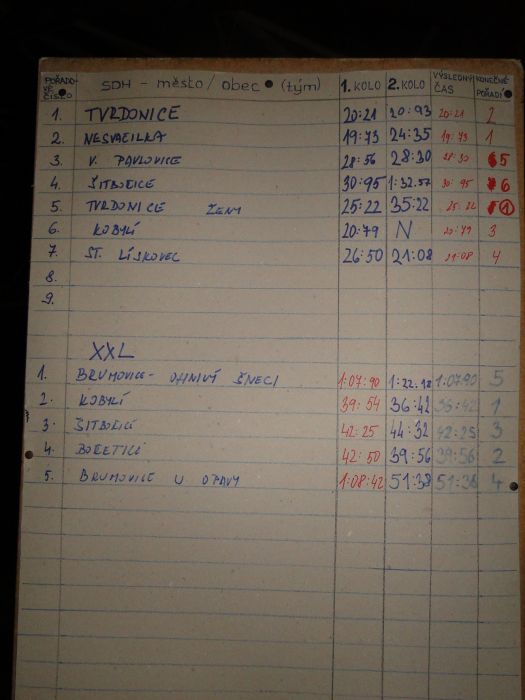 POŘADOVÉ ČÍSLO SDH - město / obec (tým) 1. KOLO 2. KOLO VÝSLEDNÝ ČAS KONEČNÉ POŘADÍ
1. TVRDONICE 20:21 20:93 20:21 2
2. NESVAČILKA 19:73 24:35 19:73 1
3. V. PAVLOVICE 28:56 28:30 28:30 5
4. ŠITBOŘICE 30:95 1:32.57 30:95 6
5. TVRDONICE ŽENY 25:22 35:22 25:22 1
6. KOBYLÍ 20:79 N 20:79 3
7. ST. LÍSKOVEC 26:50 21:08 21:08 4
8.
9.
XXL
1. BRUMOVICE - OHNIVÍ ŠNECI 1:07:90 1:22.18 1:07:90 5
2. KOBYLÍ 39:54 36:42 36:42 1
3. ŠITBOŘICE 42:25 44:32 42:25 3
4. BOŘETICE 42:50 39:56 39:56 2
5. BRUMOVICE U OPAVY 1:08:42 51:38 51:38 4